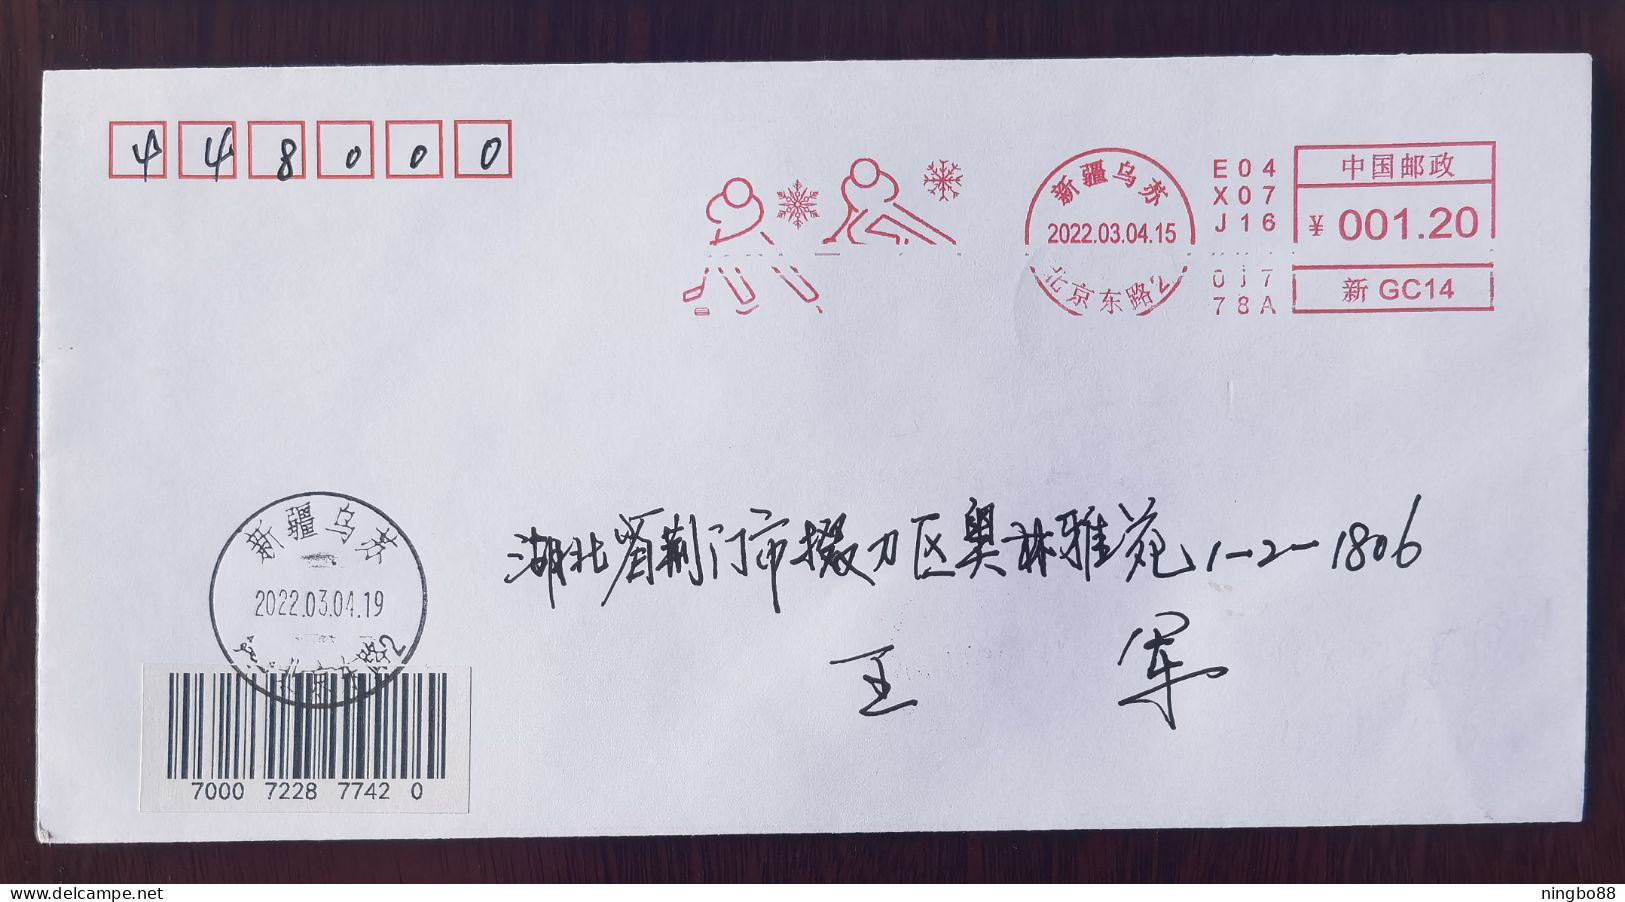 448000
新疆乌苏
2022.03.04.15
北京东路2
E04
X07
J16
78A
中国邮政
¥ 001.20
新 GC14
湖北省荆门市掇刀区奥林雅苑1-2-1806
王 军
新疆乌苏
2022.03.04.19
北京东路2
7000 7228 7742 0
delcampe.net
ningbo88